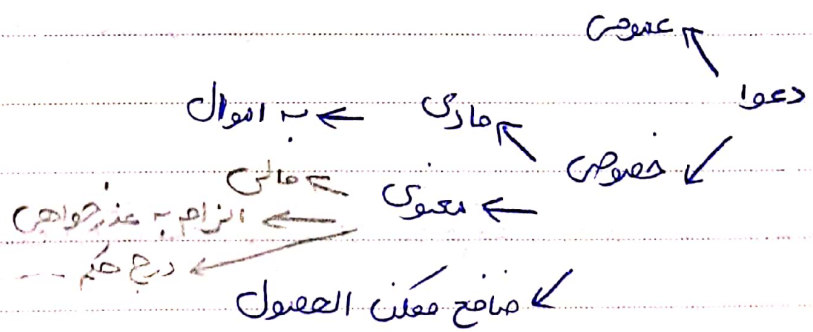 عمومی
دعوا
مادی ← به اموال
خصوصی
معنوی ← مالی
← الزام به عذرخواهی
درج حکم ...
منافع ممکن الحصول